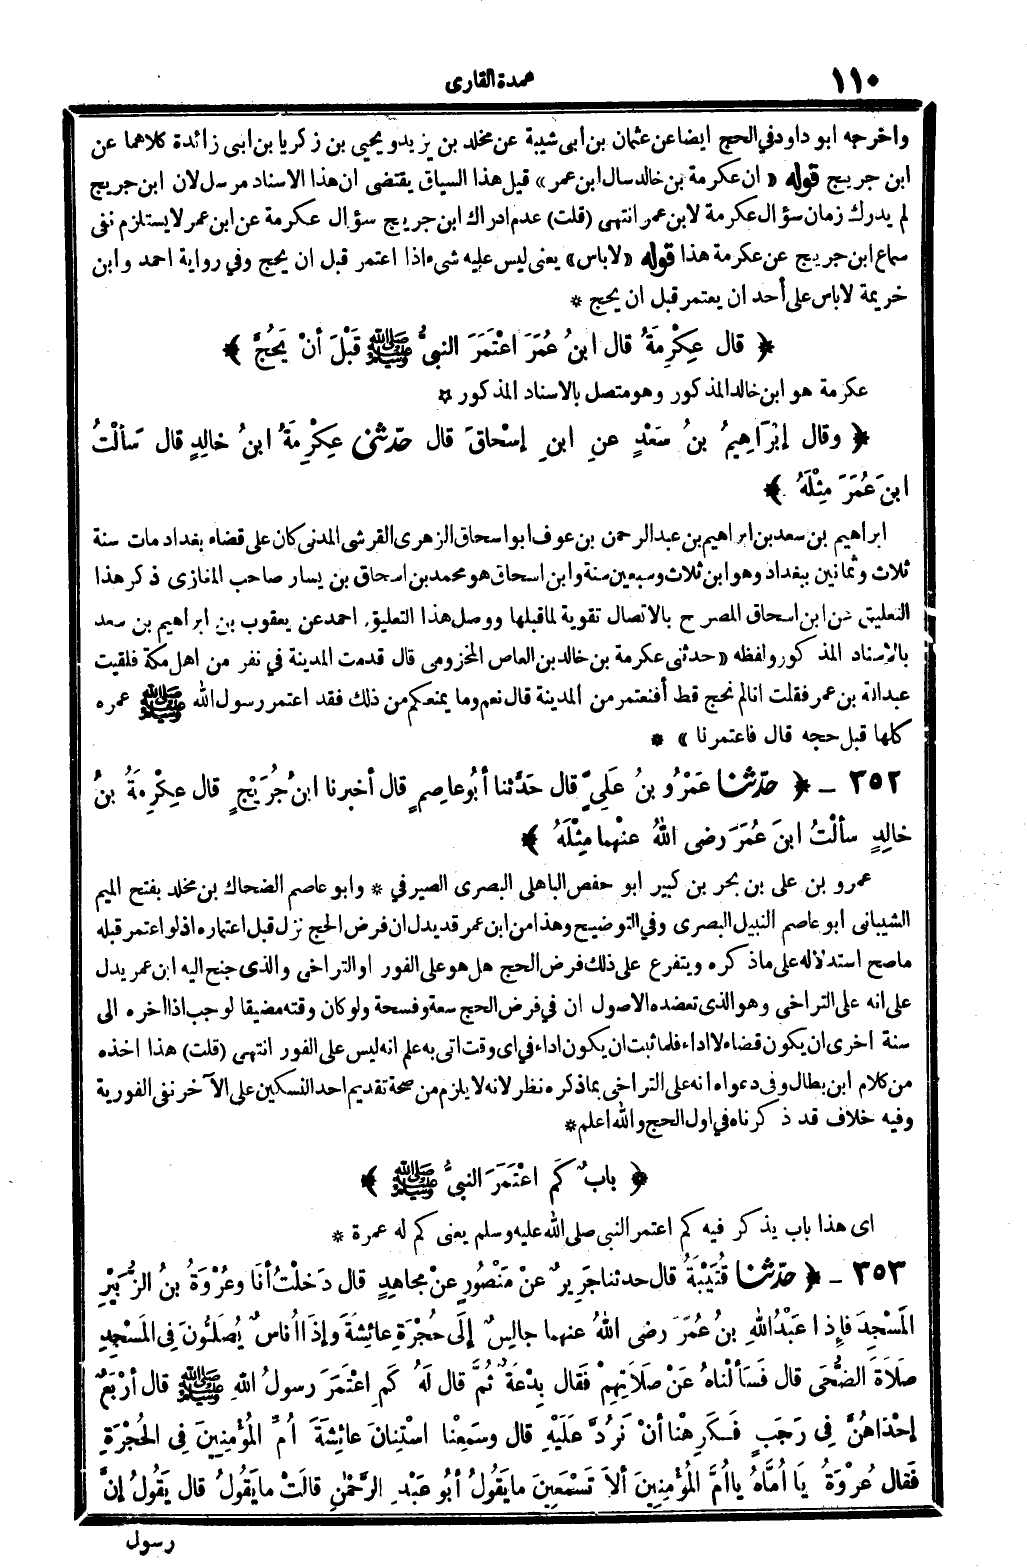 ١١٠ عمدة القارى
واخرجه ابو داود في الحج ايضا عن عثمان بن ابى شيبة عن مخلد بن يزيد ويحيى بن زكريا بن ابى زائدة كلاهما عن
ابن جريج قوله «ان عكرمة بن خالد سال ابن عمر» قيل هذا السياق يقتضى ان هذا الاسناد مرسل لان ابن جريج
لم يدرك زمان سؤال عكرمة لابن عمر انتهى (قلت) عدم ادراك ابن جريج سؤال عكرمة عن ابن عمر لا يستلزم نفى
سماع ابن جريج عن عكرمة هذا قوله «لاباس» يعنى ليس عليه شىء اذا اعتمر قبل ان يحج وفي رواية احمد وابن
خريمة لاباس على أحد ان يعتمر قبل ان يحج *
﴿ قال عِكْرِمَةُ قال ابنُ عُمَرَ اعْتَمَرَ النبىُّ ﷺ قَبْلَ أنْ يَحُجَّ ﴾
عكرمة هو ابن خالد المذكور وهو متصل بالاسناد المذكور *
﴿ وقال إبْرَاهِيمُ بنُ سَعْدٍ عنِ ابنِ إسْحاقَ قال حدّثنى عِكْرِمَةُ ابنُ خالِدٍ قال سَألْتُ
ابنَ عُمَرَ مِثْلَهُ ﴾
ابراهيم بن سعد بن ابراهيم بن عبد الرحمن بن عوف ابو اسحاق الزهرى القرشى المدنى كان على قضاء بغداد مات سنة
ثلاث وثمانين ببغداد وهو ابن ثلاث وسبعين سنة وابن اسحاق هو محمد بن اسحاق بن يسار صاحب المغازى ذكر هذا
التعليق عن ابن اسحاق المصرح بالاتصال تقوية لما قبلها ووصل هذا التعليق احمد عن يعقوب بن ابراهيم بن سعد
بالاسناد المذكور ولفظه «حدثنى عكرمة بن خالد بن العاص المخزومى قال قدمت المدينة في نفر من اهل مكة فلقيت
عبد الله بن عمر فقلت انا لم نحج قط أفنعتمر من المدينة قال نعم وما يمنعكم من ذلك فقد اعتمر رسول الله ﷺ عمره
كلها قبل حجه قال فاعتمرنا» *
٣٥٢ - ﴿ حدّثنا عَمْرُو بنُ عَلِىٍّ قال حَدَّثنا أبُو عاصِمٍ قال أخبرنا ابنُ جُرَيْجٍ قال عِكْرِمَةُ بنُ
خالِدٍ سألْتُ ابنَ عُمَرَ رضى اللهُ عنْهما مِثْلَهُ ﴾
عمرو بن على بن بحر بن كبير ابو حفص الباهلى البصرى الصيرفي * وابو عاصم الضحاك بن مخلد بفتح الميم
الشيبانى ابو عاصم النبيل البصرى وفي التوضيح وهذا من ابن عمر قد يدل ان فرض الحج نزل قبل اعتماره اذ لو اعتمر قبله
ماصح استدلاله على ماذكره ويتفرع على ذلك فرض الحج هل هو على الفور او التراخى والذى جنح اليه ابن عمر يدل
على انه على التراخى وهو الذى تعضده الاصول ان في فرض الحج سعة وفسحة ولو كان وقته مضيقا لوجب اذا اخره الى
سنة اخرى ان يكون قضاء لا اداء فلما ثبت ان يكون اداء في اى وقت اتى به علم انه ليس على الفور انتهى (قلت) هذا اخذه
من كلام ابن بطال وفى دعواه انه على التراخى بما ذكره نظر لانه لا يلزم من صحة تقديم احد النسكين على الآخر نفى الفورية
وفيه خلاف قد ذكرناه في اول الحج والله اعلم *
﴿ بابٌ كَمِ اعْتَمَرَ النبىُّ ﷺ ﴾
اى هذا باب يذكر فيه كم اعتمر النبى صلى الله عليه وسلم يعنى كم له عمرة *
٣٥٣ - ﴿ حدّثنا قُتَيْبَةُ قال حدثنا جَرِيرٌ عنْ مَنْصُورٍ عنْ مجاهِدٍ قال دَخلْتُ أنَا وعُرْوَةُ بنُ الزُّبَيْرِ
المَسْجِدَ فإِذا عَبْدُ اللهِ بنُ عُمَرَ رضى اللهُ عنهما جالِسٌ إلَى حُجْرَةِ عائِشَةَ وإذَا أُناسٌ يُصَلُّونَ فى المَسْجِدِ
صَلاَةَ الضُّحَى قال فَسَألْناهُ عَنْ صَلاَتِهِمْ فَقال بِدْعَةٌ ثُمَّ قال لَهُ كَمِ اعْتَمَرَ رسولُ اللهِ ﷺ قال أرْبَعٌ
إحْدَاهُنَّ فى رَجَبٍ فَكَرِهْنا أنْ نَرُدَّ عَلَيْهِ قال وسَمِعْنا اسْتِنانَ عائِشَةَ أُمِّ المُؤْمِنِينَ فى الحُجْرَةِ
فَقال عُرْوَةُ يَا أُمَّاهُ ياأُمَّ المُؤْمِنِينَ ألاَ تَسْمَعِينَ ما يَقُولُ أبُو عَبْدِ الرَّحْمٰنِ قالَتْ ما يَقُولُ قال يَقُولُ إنَّ
رسول